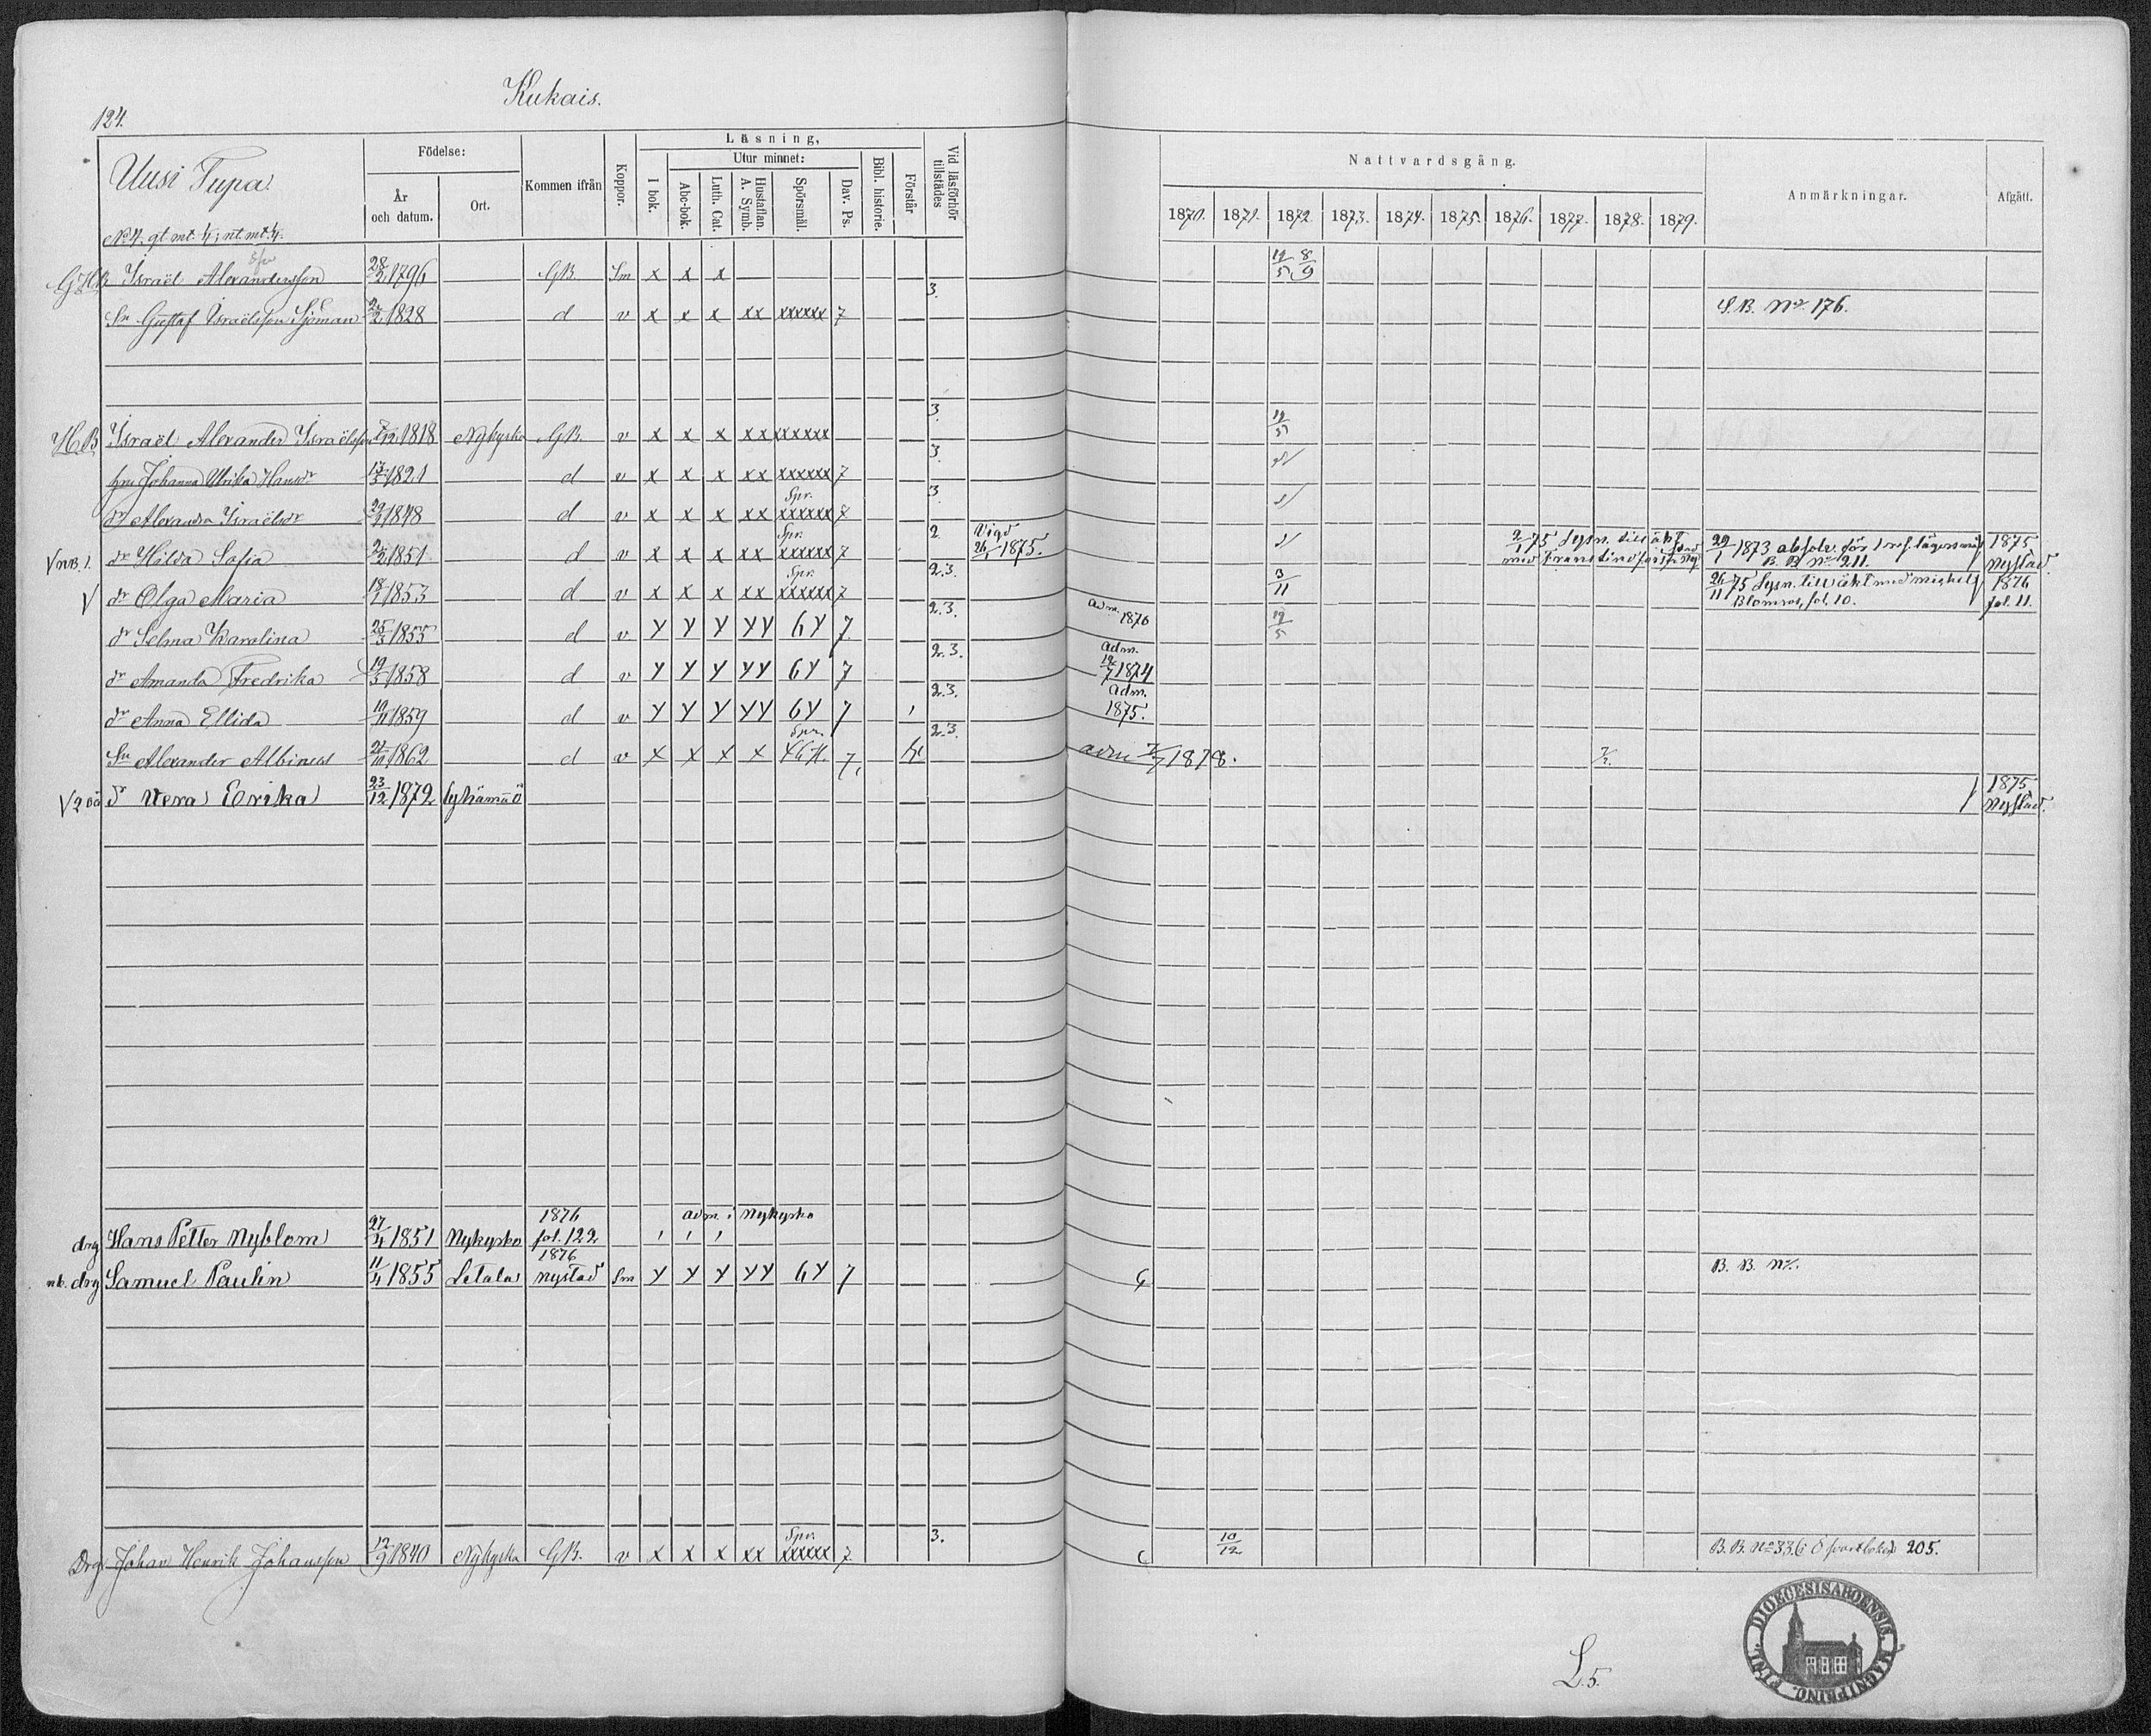 Kukais.
124.
Uusi Tupa
No 4. gl. mt. ¼; nt. mt. ¼.
Födelse:
År och datum.
Ort.
Kommen ifrån
Koppor.
Läsning,
I bok.
Utur minnet:
Abc-bok.
Luth. Cat.
Hustaflan. A. Symb.
Spörsmål.
Dav. Ps.
Bibl. historie.
Förstår
Vid läsförhör tillstädes
Nattvardsgång.
1870. 1871. 1872. 1873. 1874. 1875. 1876. 1877. 1878. 1879.
Anmärkningar.
Afgått.
GHB Israël Alexandersson 28/2 1796 GB Sm x x x 12/5 8/9
Sn Gustaf Israëlsson Sjöman 1828 d v x x x xx xxxxxx 7 3. S.B. No 176.
HB Israël Alexander Israëlsson 1818 Nykyrka GB v x x x xx xxxxxx 3. 12/5
hru Johanna Ulrika Hansdr 1821 d v x x x xx xxxxxx 7 3.
dr Alexandra Israëlsdr 1848 d v x x x xx Spr. xxxxxx 3.
NB. 1. dr Hilda Sofia 2/2 1851 d v x x x xx Spr. xxxxxx 7 2. Vigd 26/1 1875. 2/1 75 Lysn. till äkt. med 29/1 1873 absolv. för 1 resf. lägersmål B. B. No 211. 1875 Nystad.
V dr Olga Maria 1853 d v x x x xx Spr. xxxxxx 7 2.3. 3/11 26/11 75 Lysn. till äkt. med Michel Blomros, fol. 10. 1876 fol. 11.
dr Selma Karolina 25/3 1855 d v Y Y Y YY 6Y 7 2.3. adm. 1876 12/5
dr Amanda Fredrika 19/5 1858 d v Y Y Y YY 6Y 7 2.3. adm. 12/7 1874
dr Anna Ellida 10/11 1859 d v Y Y Y YY 6Y 7 2.3. adm. 1875.
Sn Alexander Albinus 21/10 1862 d v x x x x Spr. 7 2.3. adm 7/7 1878.
dr Vera Erika 23/12 1872 Lyhämaa 1875 Nystad.
drg Hans Petter Nyblom 27/4 1851 Nykyrko 1876 fol. 122 adm. i Nykyrko
nb. drg Samuel Paulin 11/4 1855 Letala 1876 Nystad Sm Y Y Y YY 6Y 7 B. B. No.
Drg. Johan Henrik Johansson 12/9 1840 Nykyrka GB. v x x x xx Spr. xxxxxx 7 3. 10/12 B. B. No 336 205.
L.5.
DIOECESIS ABOENSIS. MAGNI PRINC. FINL.